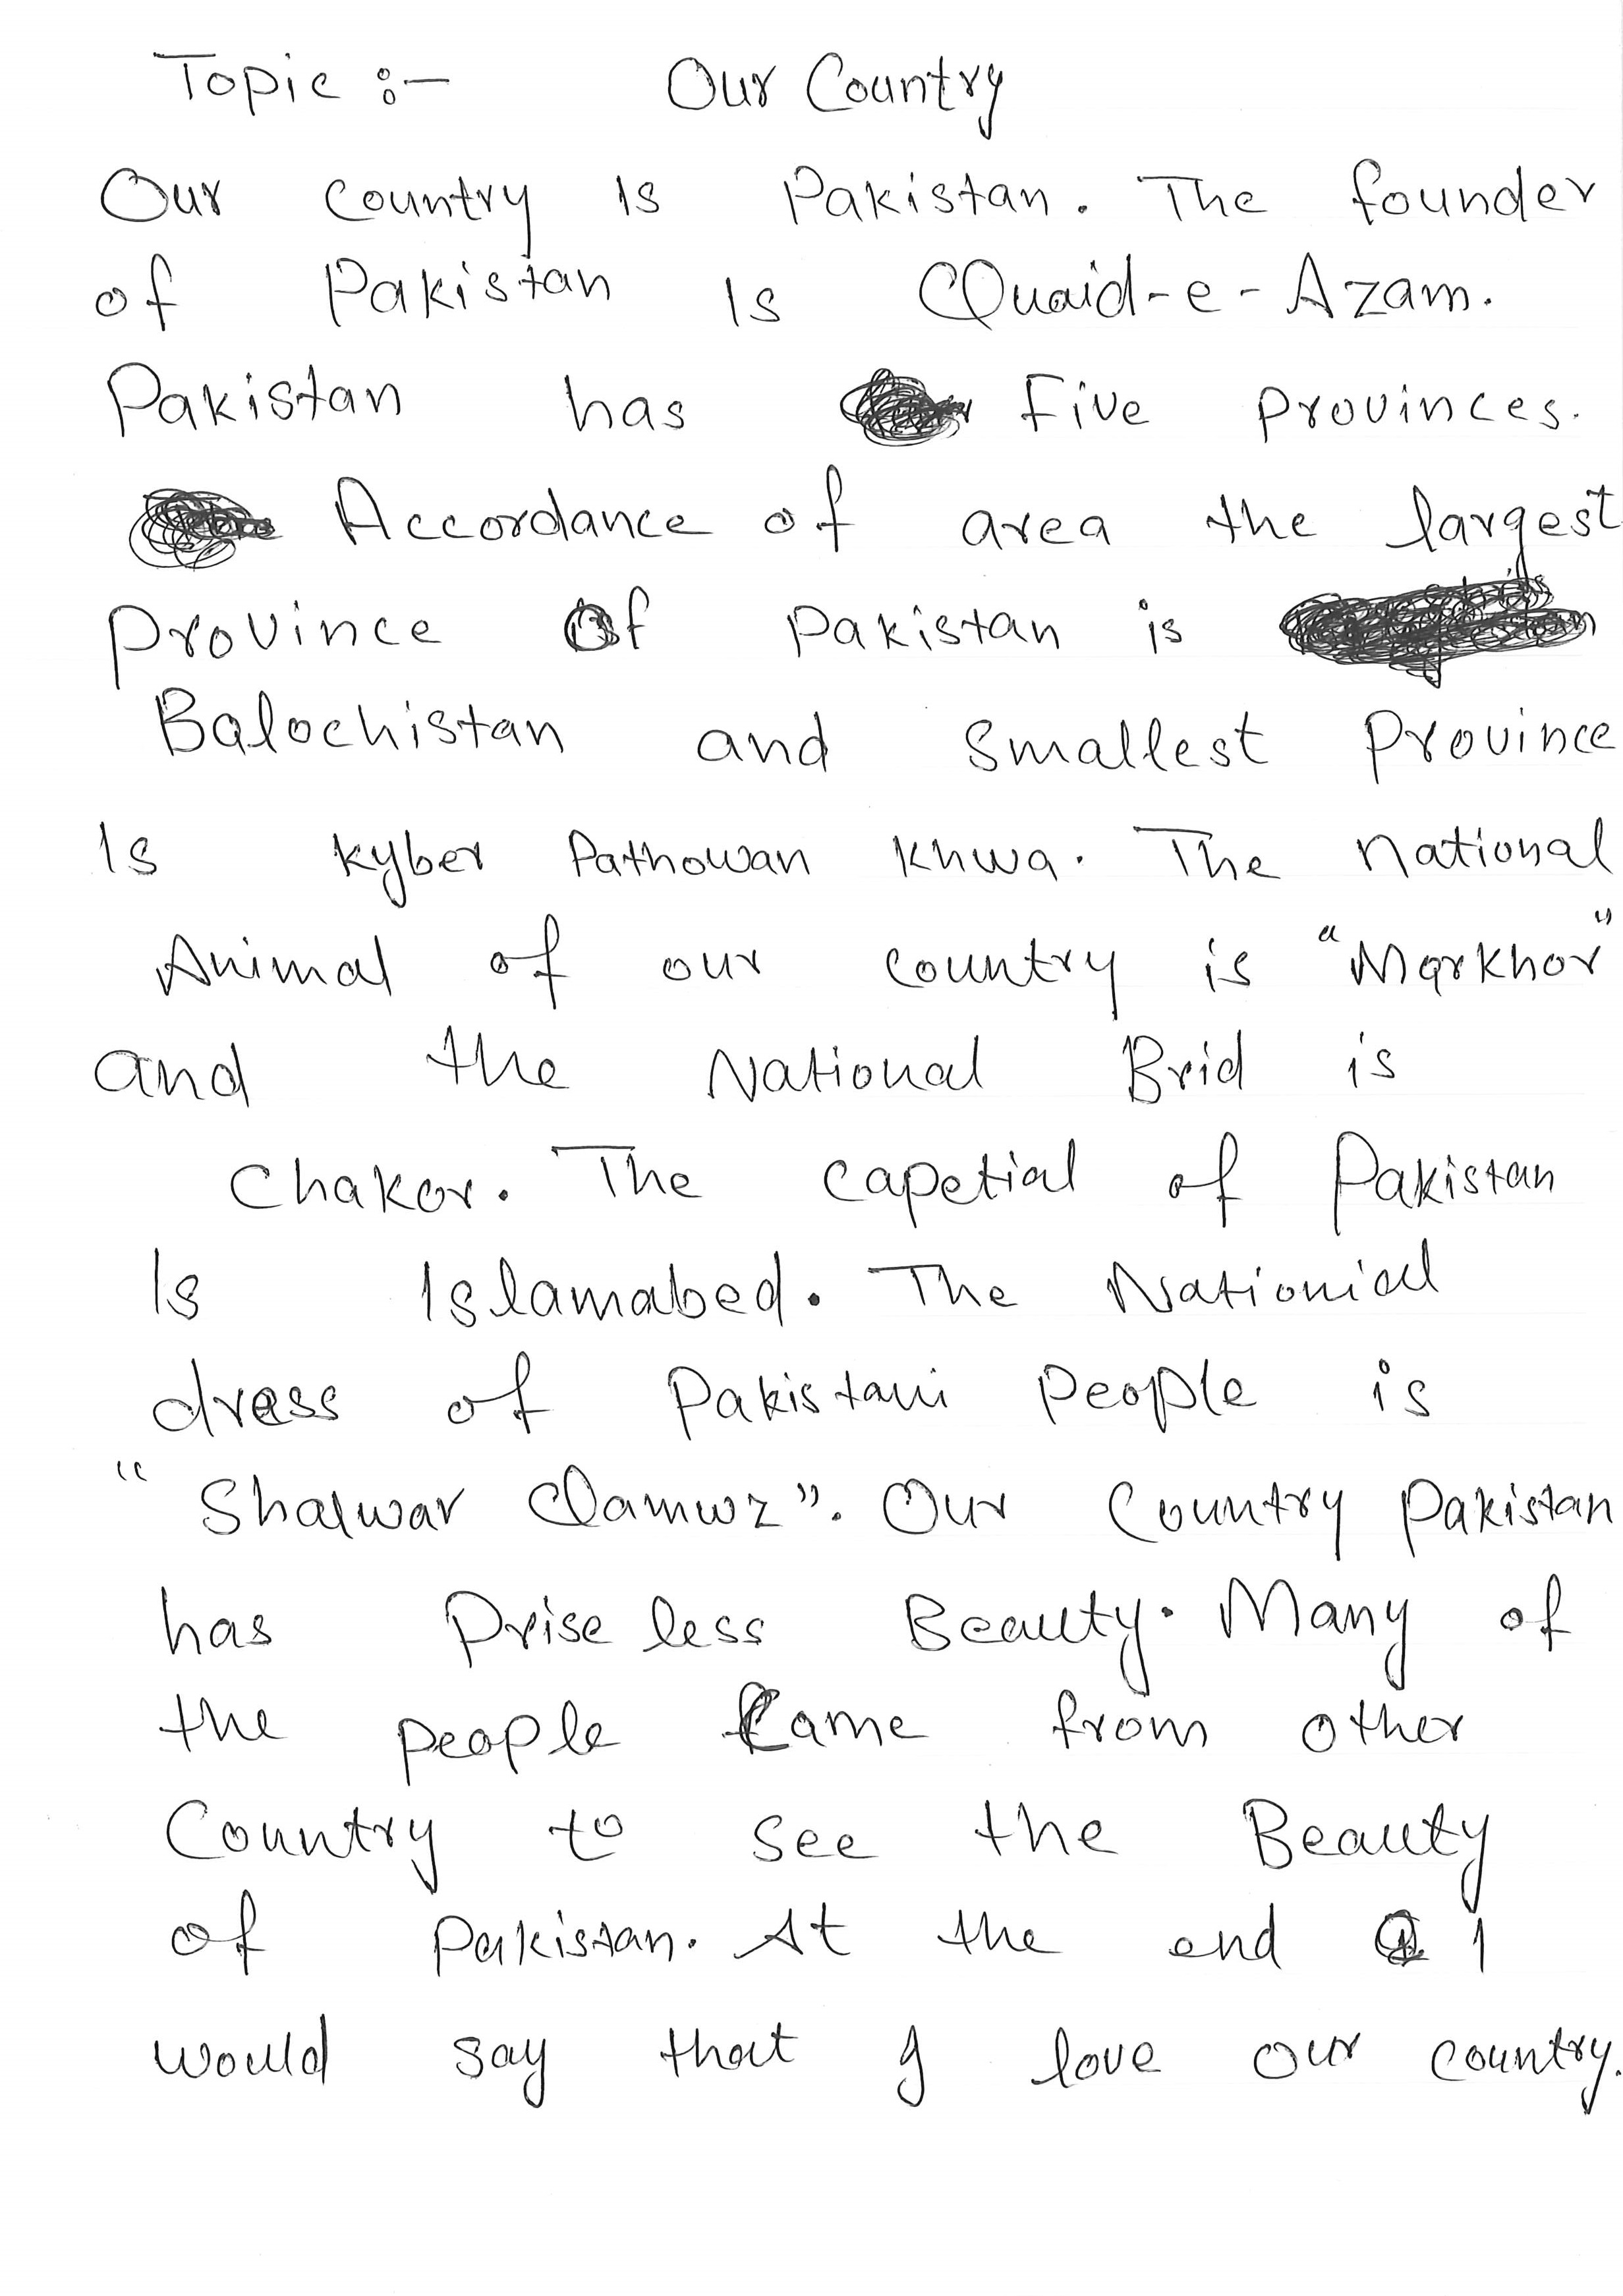 Topic :- Our Country
Our Country is Pakistan. The founder
of Pakistan Is Quaid-e-Azam.
Pakistan has Five Provinces.
Accordance of area the largest
Province Of Pakistan is
Balochistan and Smallest Province
Is kyber Pathowan khwa. The national
Animal of our country is "Markhor"
and the National Brid is
Chakor. The capetial of Pakistan
Is Islamabed. The Nationial
dress of Pakistani People is
"Shalwar Qamwz". Our Country Pakistan
has Prise less Beauty. Many of
the people Came from other
Country to see the Beauty
of Pakistan. At the end I
would say that I love our country.